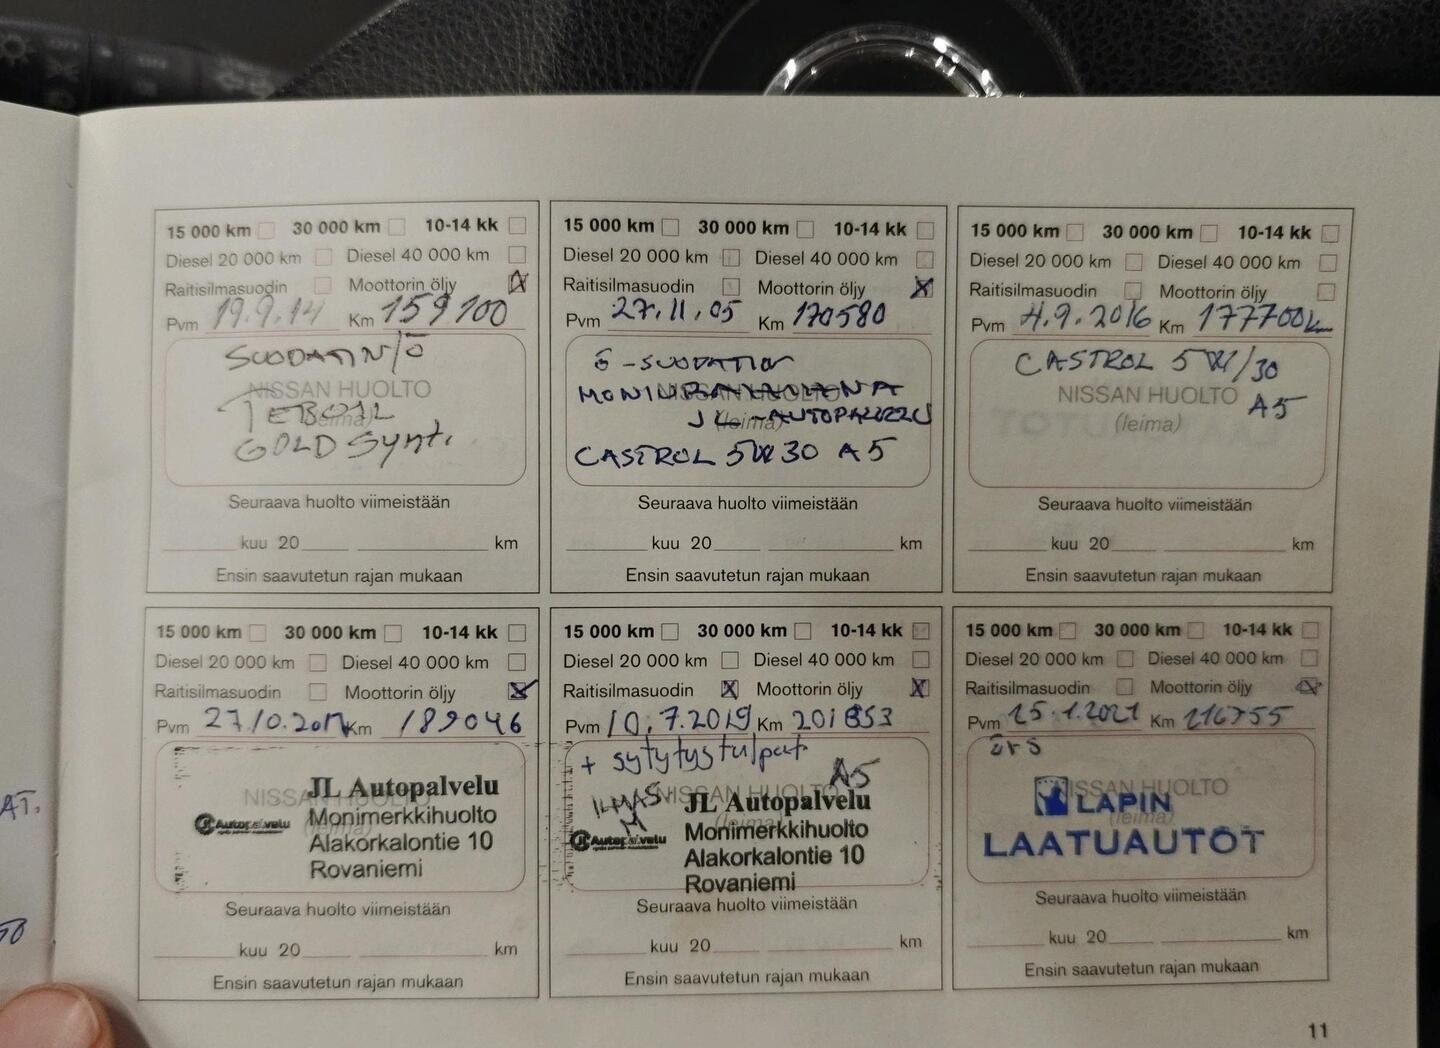 15 000 km 30 000 km 10-14 kk
Diesel 20 000 km Diesel 40 000 km
Raitisilmasuodin Moottorin öljy
Pvm 19.9.14 Km 159100
SUODATIN/Ö
NISSAN HUOLTO
(leima)
TEBOIL
GOLD Synt.
Seuraava huolto viimeistään
kuu 20 km
Ensin saavutetun rajan mukaan
15 000 km 30 000 km 10-14 kk
Diesel 20 000 km Diesel 40 000 km
Raitisilmasuodin Moottorin öljy
Pvm 27.11.05 Km 170580
Ö-SUODATIN
NISSAN HUOLTO
(leima)
JL-AUTOPALVELU
CASTROL 5W30 A5
Seuraava huolto viimeistään
kuu 20 km
Ensin saavutetun rajan mukaan
15 000 km 30 000 km 10-14 kk
Diesel 20 000 km Diesel 40 000 km
Raitisilmasuodin Moottorin öljy
Pvm 4.9.2016 Km 177700km
CASTROL 5W/30
NISSAN HUOLTO
A5
(leima)
Seuraava huolto viimeistään
kuu 20 km
Ensin saavutetun rajan mukaan
15 000 km 30 000 km 10-14 kk
Diesel 20 000 km Diesel 40 000 km
Raitisilmasuodin Moottorin öljy
Pvm 27.10.2017 Km 189046
NISSAN HUOLTO
(leima)
JL Autopalvelu
JL Autopalvelu
Monimerkkihuolto
Alakorkalontie 10
Rovaniemi
Seuraava huolto viimeistään
kuu 20 km
Ensin saavutetun rajan mukaan
15 000 km 30 000 km 10-14 kk
Diesel 20 000 km Diesel 40 000 km
Raitisilmasuodin Moottorin öljy
Pvm 10.7.2019 Km 201853
+ sytytystulpat
A5
ILMAS
NISSAN HUOLTO
(leima)
JL Autopalvelu
JL Autopalvelu
Monimerkkihuolto
Alakorkalontie 10
Rovaniemi
Seuraava huolto viimeistään
kuu 20 km
Ensin saavutetun rajan mukaan
15 000 km 30 000 km 10-14 kk
Diesel 20 000 km Diesel 40 000 km
Raitisilmasuodin Moottorin öljy
Pvm 15.1.2021 Km 216755
NISSAN HUOLTO
(leima)
LAPIN
LAATUAUTOT
Seuraava huolto viimeistään
kuu 20 km
Ensin saavutetun rajan mukaan
11